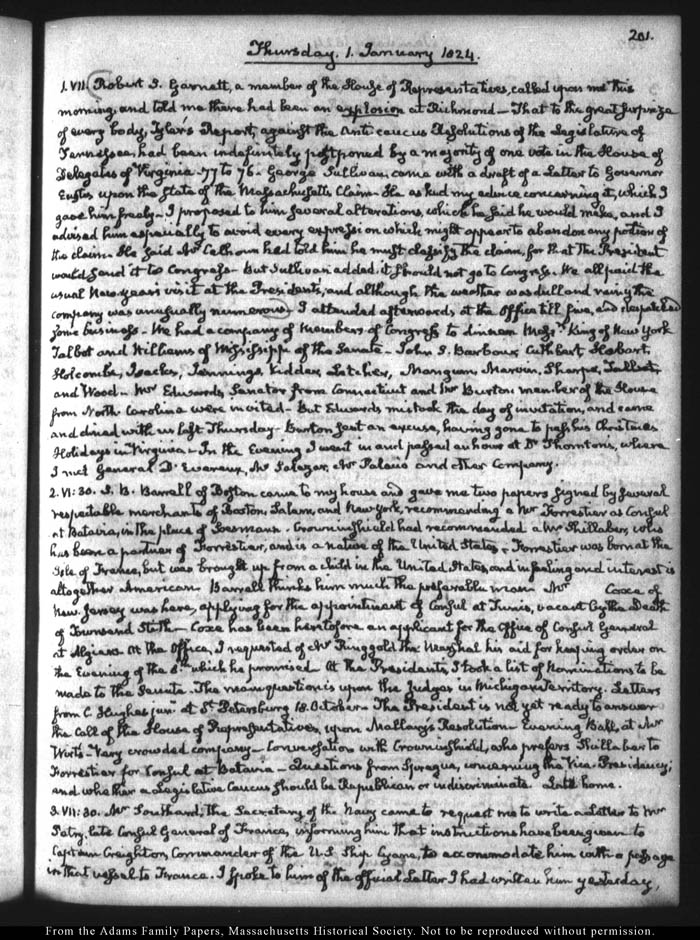 201.
Thursday. 1. January 1824.
1. VII. Robert S. Garnett, a member of the House of Representatives, called upon me this
morning, and told me there had been an explosion at Richmond — That to the great surprize
of every body, Tyler's Report, against the Anti caucus Resolutions of the Legislature of
Tennessee, had been indefinitely postponed by a majority of one vote in the House of
Delegates of Virginia. 77 to 76. George Sullivan came with a draft of a Letter to Governor
Eustis upon the State of the Massachusetts Claim. He asked my advice concerning it, which I
gave him freely. I proposed to him several alterations, which he said he would make, and I
advised him especially to avoid every expression which might appear to abandon any portion of
the claim. He said Mr Calhoun had told him he must classify the claim, for that The President
would send it to Congress. But Sullivan added, it should not go to Congress. We all paid the
usual New-year's visit at the Presidents, and although the weather was dull and rainy the
company was unusually numerous. I attended afterwards at the Office till five, and despatched
some business. We had a company of members of Congress to dinner Messrs King of New York
Talbot and Williams of Mississippi of the Senate — John S. Barbour, Cuthbert, Hobart,
Holcombe, Isacks, Jennings, Kidder, Letcher, Mangum, Marvin, Sharpe, Tallest,
and Wood — Mr Edwards, Senator from Connecticut and Mr Burton member of the House
from North Carolina were invited — But Edwards mistook the day of invitation, and came
and dined with us last Thursday — Burton sent an excuse, having gone to pass his Christmas
Holidays in Virginia — In the Evening I went in and passed an hour at Dr Thornton's, where
I met General D'Evereux, Mr Salazar, Mr Palacio and other Company.
2. VI:30. S. B. Barrell of Boston came to my house and gave me two papers signed by several
respectable merchants of Boston, Salem, and New York, recommending a Mr Forrestier as Consul
at Batavia, in the place of Crowninshield had recommended a Mr Shillaber, who
has been a partner of Forrestier, and is a native of the United States. Forrestier was born at the
Isle of France, but was brought up from a child in the United States, and in feeling and interest is
altogether American. Barrell thinks him much the preferable man. Mr Coxe of
New Jersey was here, applying for the appointment of Consul at Tunis, vacant by the Death
of Townsend Stith — Coxe has been heretofore an applicant for the Office of Consul General
at Algiers. At the Office, I requested of Mr Ringgold the Marshal his aid for keeping order on
the Evening of the 8th which he promised. At the Presidents, I took a list of Nominations to be
made to the Senate. The main question is upon the Judges in Michigan Territory. Letters
from C. Hughes junr at St Petersburg 18. October. The President is not yet ready to answer
the Call of the House of Representatives, upon Mallary's Resolution. Evening Ball, at Mr
Wirt's — Very crowded company — Conversation with Crowninshield, who prefers Shillaber to
Forrestier for Consul at Batavia — Questions from Sprague, concerning the Vice-Presidency,
and whether a Legislative Caucus should be Republican or indiscriminate. Late home.
3. VII:30. Mr Southard, the Secretary of the Navy came to request me to write a Letter to Mr
Petry, late Consul General of France, informing him that instructions have been given to
Captain Creighton, Commander of the U.S. Ship Cyane, to accommodate him with a passage
in that vessel to France. I spoke to him of the official Letter I had written him yesterday,
From the Adams Family Papers, Massachusetts Historical Society. Not to be reproduced without permission.